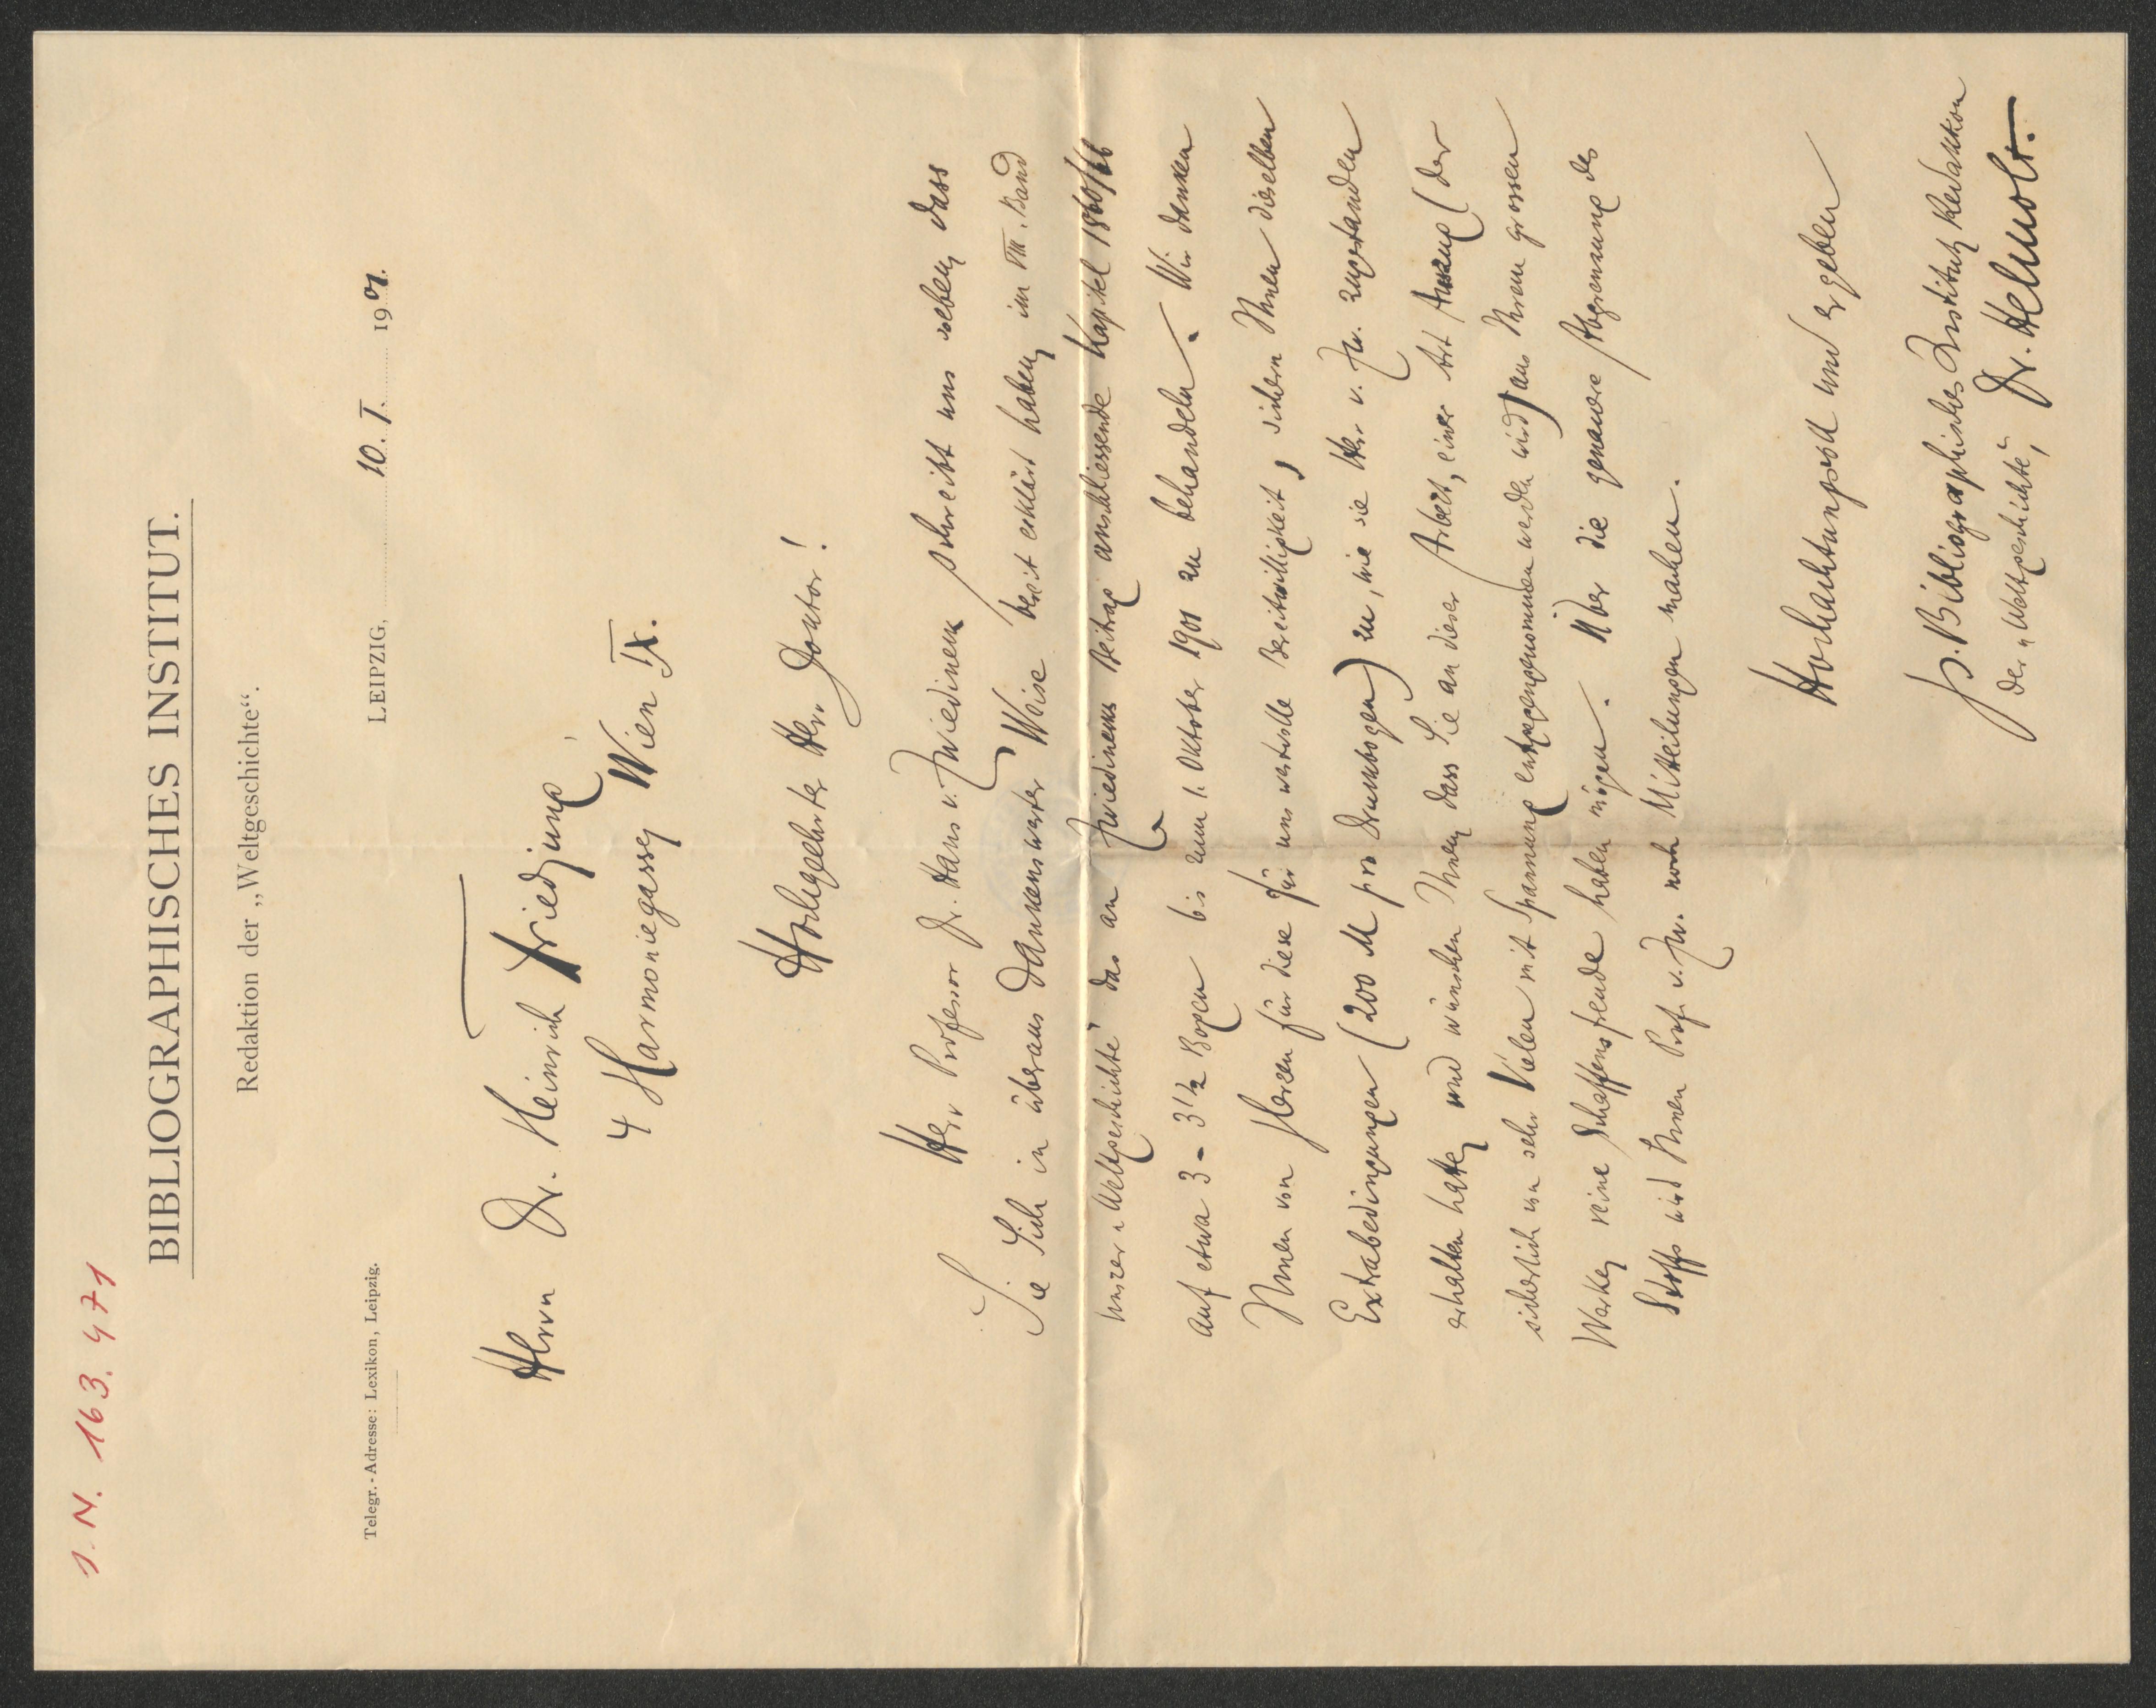 J. N. 163.471
BIBLIOGRAPHISCHES INSTITUT.
Redaktion der „Weltgeschichte“.
Telegr.-Adresse: Lexikon, Leipzig.
LEIPZIG, 10. I. 1901.
Herrn Dr. Heinrich Friedjung,
4 Harmoniegasse, Wien IX.
Hochgeehrter Herr Doktor!
Herr Professor Dr. Hans v. Zwiedineck schreibt uns soeben, dass
Sie Sich in überaus dankenswerter Weise bereit erklärt haben, im VIII. Band
unserer „Weltgeschichte“ das an Zwiedinecks Beitrag anschliessende Kapitel 1860/66
auf etwa 3 - 3 1/2 Bogen bis zum 1. Oktober 1901 zu behandeln. Wir danken
Ihnen von Herzen für diese für uns wertvolle Bereitwilligkeit, sichern Ihnen dieselben
Extrabedingungen (200 M pro Druckbogen) zu, wie sie Herr v. Zw. zugestanden
erhalten hatte, und wünschen Ihnen, dass Sie an dieser Arbeit, einer Art Auszug (der
sicherlich von sehr Vielen mit Spannung entgegengenommen werden wird) aus Ihrem grossen
Werke, reine Schaffensfreude haben mögen. Über die genauere Abgrenzung des
Stoffs wird Ihnen Prof. v. Zw. noch Mitteilungen machen.
Hochachtungsvoll und ergeben
p. Bibliographisches Institut, Redaktion
der „Weltgeschichte“, Dr. Helmolt.